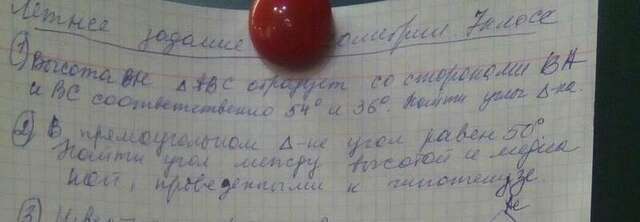 Летнее задание геометрии 7 класс
① Высота BH △ABC образует со сторонами BA
и BC соответственно 54° и 36°. Найти углы △-ка.
② В прямоугольном △-ке угол равен 50°
Найти угол между высотой и медиа
ной, проведенными к гипотенузе.
③